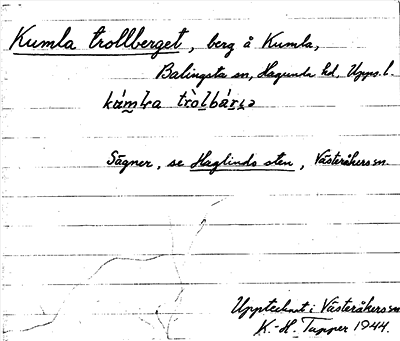 Kumla trollberget, berg å Kumla,
Balingsta sn, Hagunda hd, Upps. l.
Sägner, se Haglunds sten, Västeråkers sn.
Upptecknat i Västeråkers sn
K.-H. Tapper 1944.